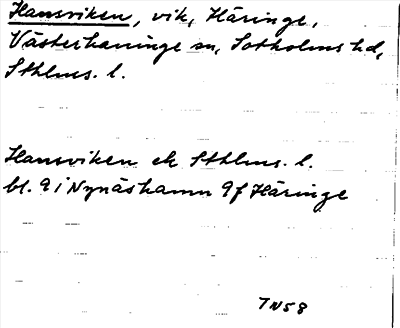 Hansviken, vik, Häringe,
Västerhaninge sn, Sotholms hd,
Sthlms. l.
Hansviken ek Sthlms. l.
bl. 9 i Nynäshamn 9f Häringe
7N58